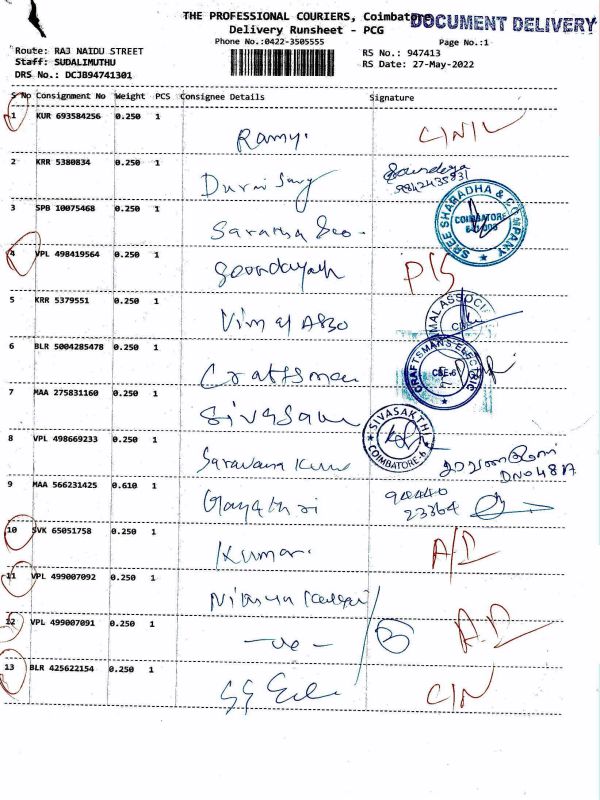 THE PROFESSIONAL COURIERS, Coimbatore
DOCUMENT DELIVERY
Delivery Runsheet - PCG
Phone No.:0422-3505555
Page No.:1
Route: RAJ NAIDU STREET
RS No.: 947413
Staff: SUDALIMUTHU
RS Date: 27-May-2022
DRS No.: DCJB94741301
S No Consignment No Weight PCS Consignee Details Signature
1 KUR 693584256 0.250 1
Ramy. C/N/L
2 KRR 5380834 0.250 1
Durai
9842435831
3 SPB 10075468 0.250 1
SREE SHARADHA & COMPANY
COIMBATORE
4 VPL 498419564 0.250 1
P/S
5 KRR 5379551 0.250 1
Vimal Asso
MAL ASSOCI
CBE
6 BLR 5004285478 0.250 1
Craftsman
CRAFTSMANS ELECTRIC
CBE-6
7 MAA 275831160 0.250 1
SIVASAKTHI
COIMBATORE-6
8 VPL 498669233 0.250 1
Saravana Kumar
சரவணகுமார்
DNO 48A
9 MAA 566231425 0.610 1
Gayathri
94440
23364
10 SVK 65051758 0.250 1
Kumar. A/D
11 VPL 499007092 0.250 1
Nithya
12 VPL 499007091 0.250 1
A.D
13 BLR 425622154 0.250 1
C/N